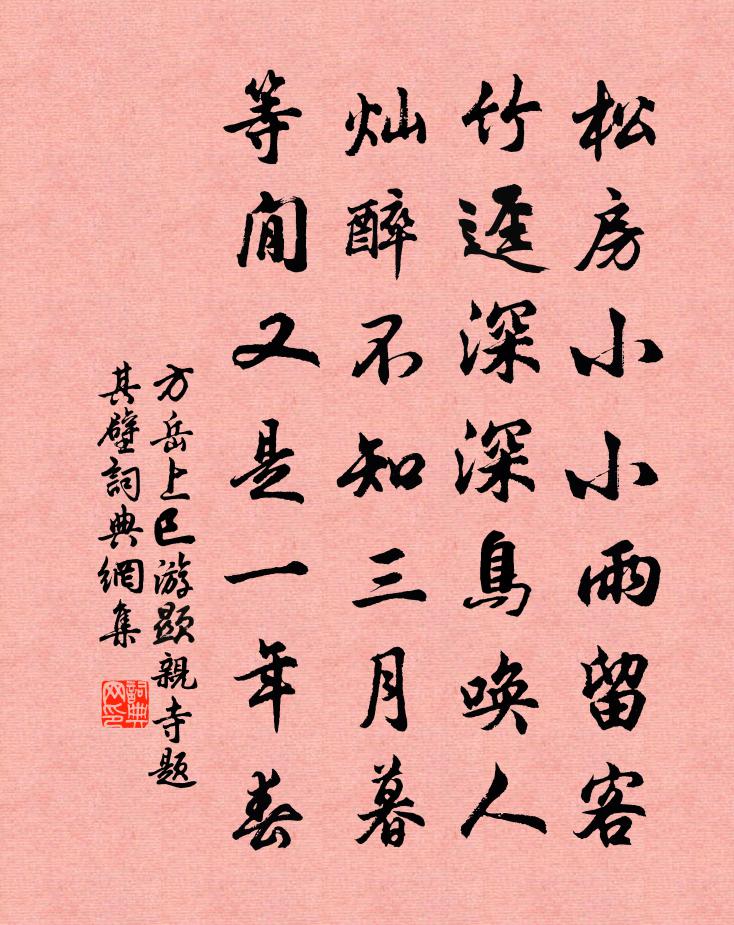 松房小小雨留客
竹逕深深鳥喚人
灿醉不知三月暮
等閒又是一年春
方岳上巳游顕親寺題
其壁詞典網集
詞典
网印